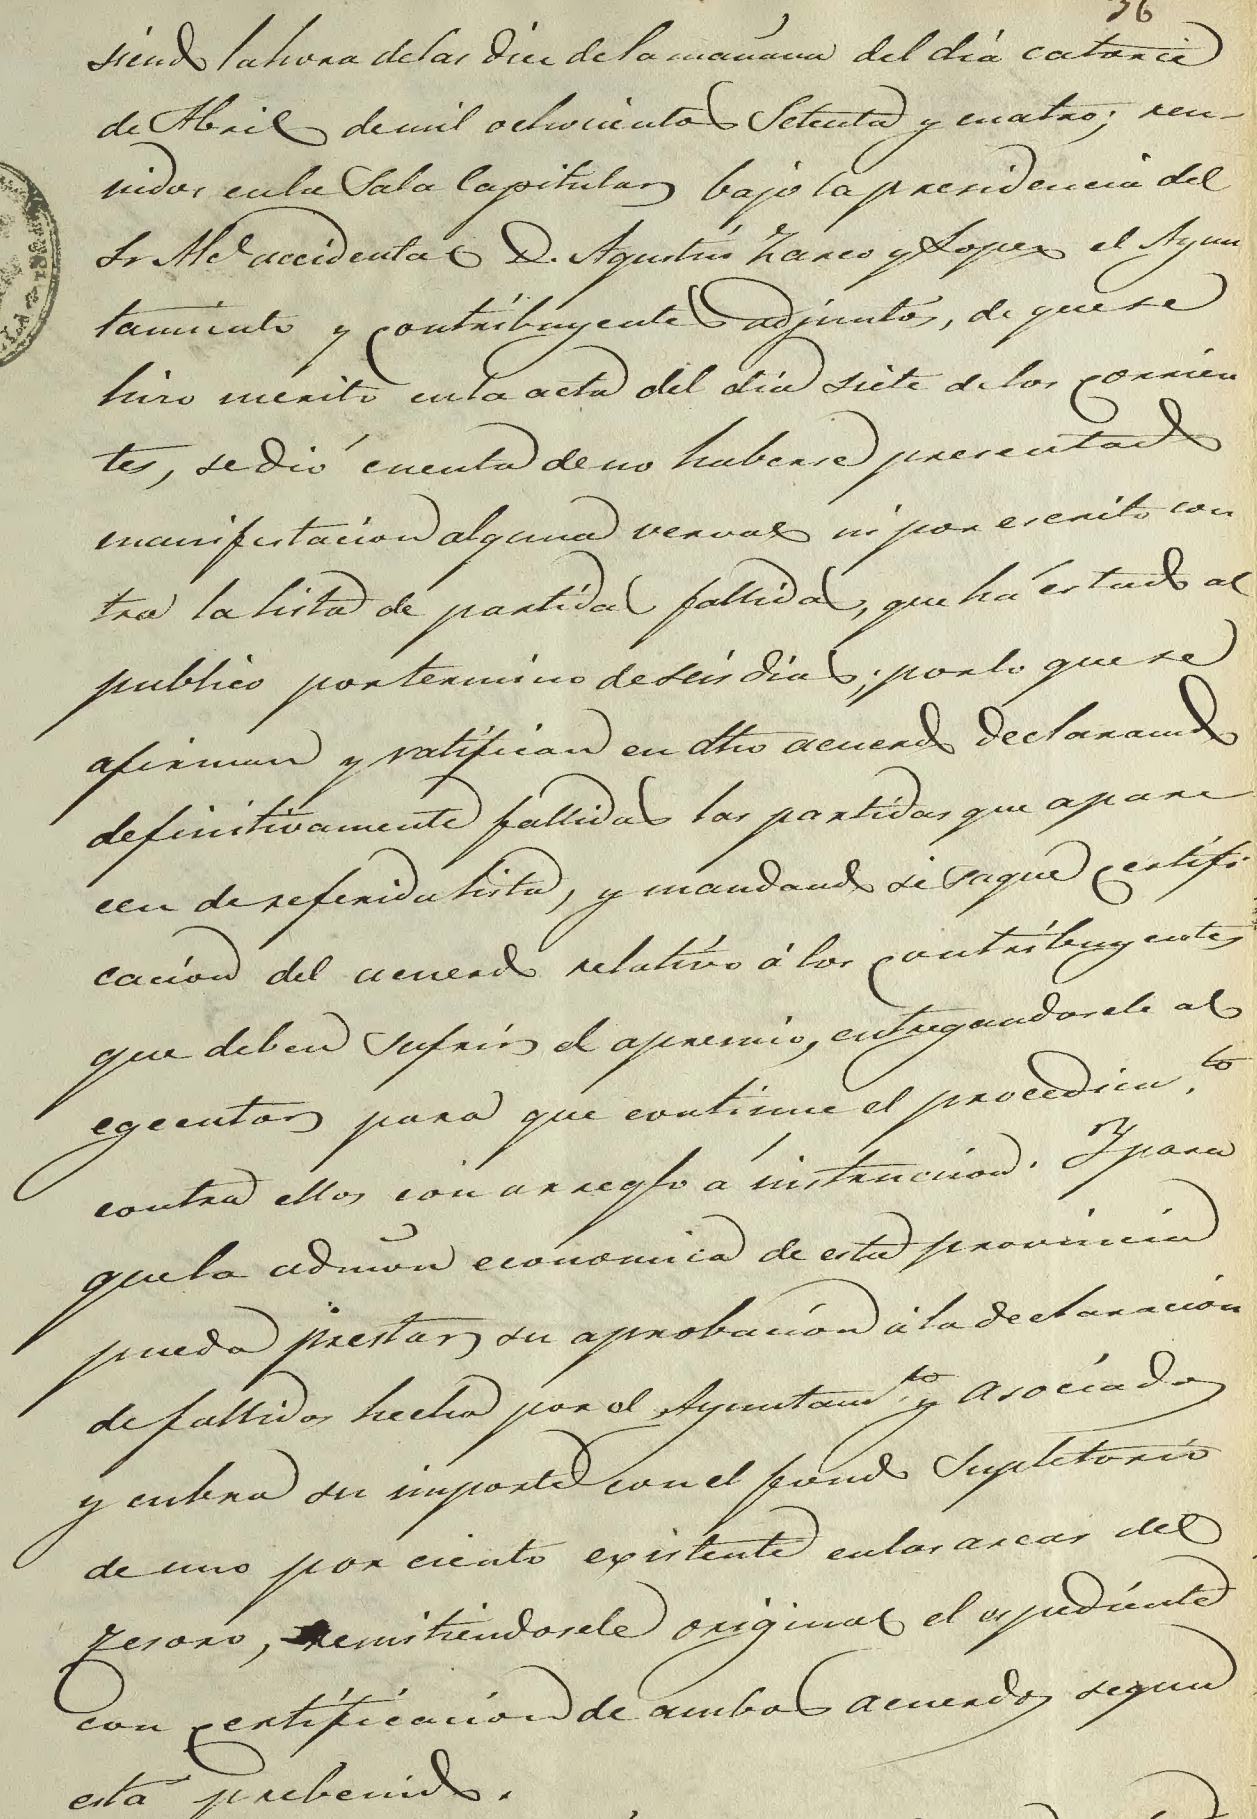 36
siendo la hora de las diez de la mañana del día catorce
de Abril de mil ochocientos Setenta y cuatro; reu-
nidos en la Sala Capitular bajo la presidencia del
Sr Alc.l accidental D. Agustin Zarco y Lopez el Ayun
tamiento y contribuyentes adjuntos, de que se
hizo merito en la acta del día siete de los corrien
tes, se dió cuenta de no haberse presentado
manifestacion alguna verval ni por escrito con
tra la lista de partidas fallidas, que há estado al
publico por termino de seis dias; por lo que se
afirman y ratifican en dho acuerdo declarando
definitivamente fallidas las partidas que apare
cen de referida lista, y mandando se saque certifi
cacion del acuerdo relativo á los contribuyentes
que deben sufrir el apremio, entregandosele al
egecutor para que continue el procedim.to
contra ellos con arreglo á instruccion. Y para
que la admon economica de esta provincia
pueda prestar su aprobacion á la declaracion
de fallidos hecha por el Ayuntam.to y asociados
y cubra su importe con el fondo Supletorio
de uno por ciento existente en las arcas del
Tesoro, remitiendosele original el espediente
con certificacion de ambos acuerdos segun
está prebenido.